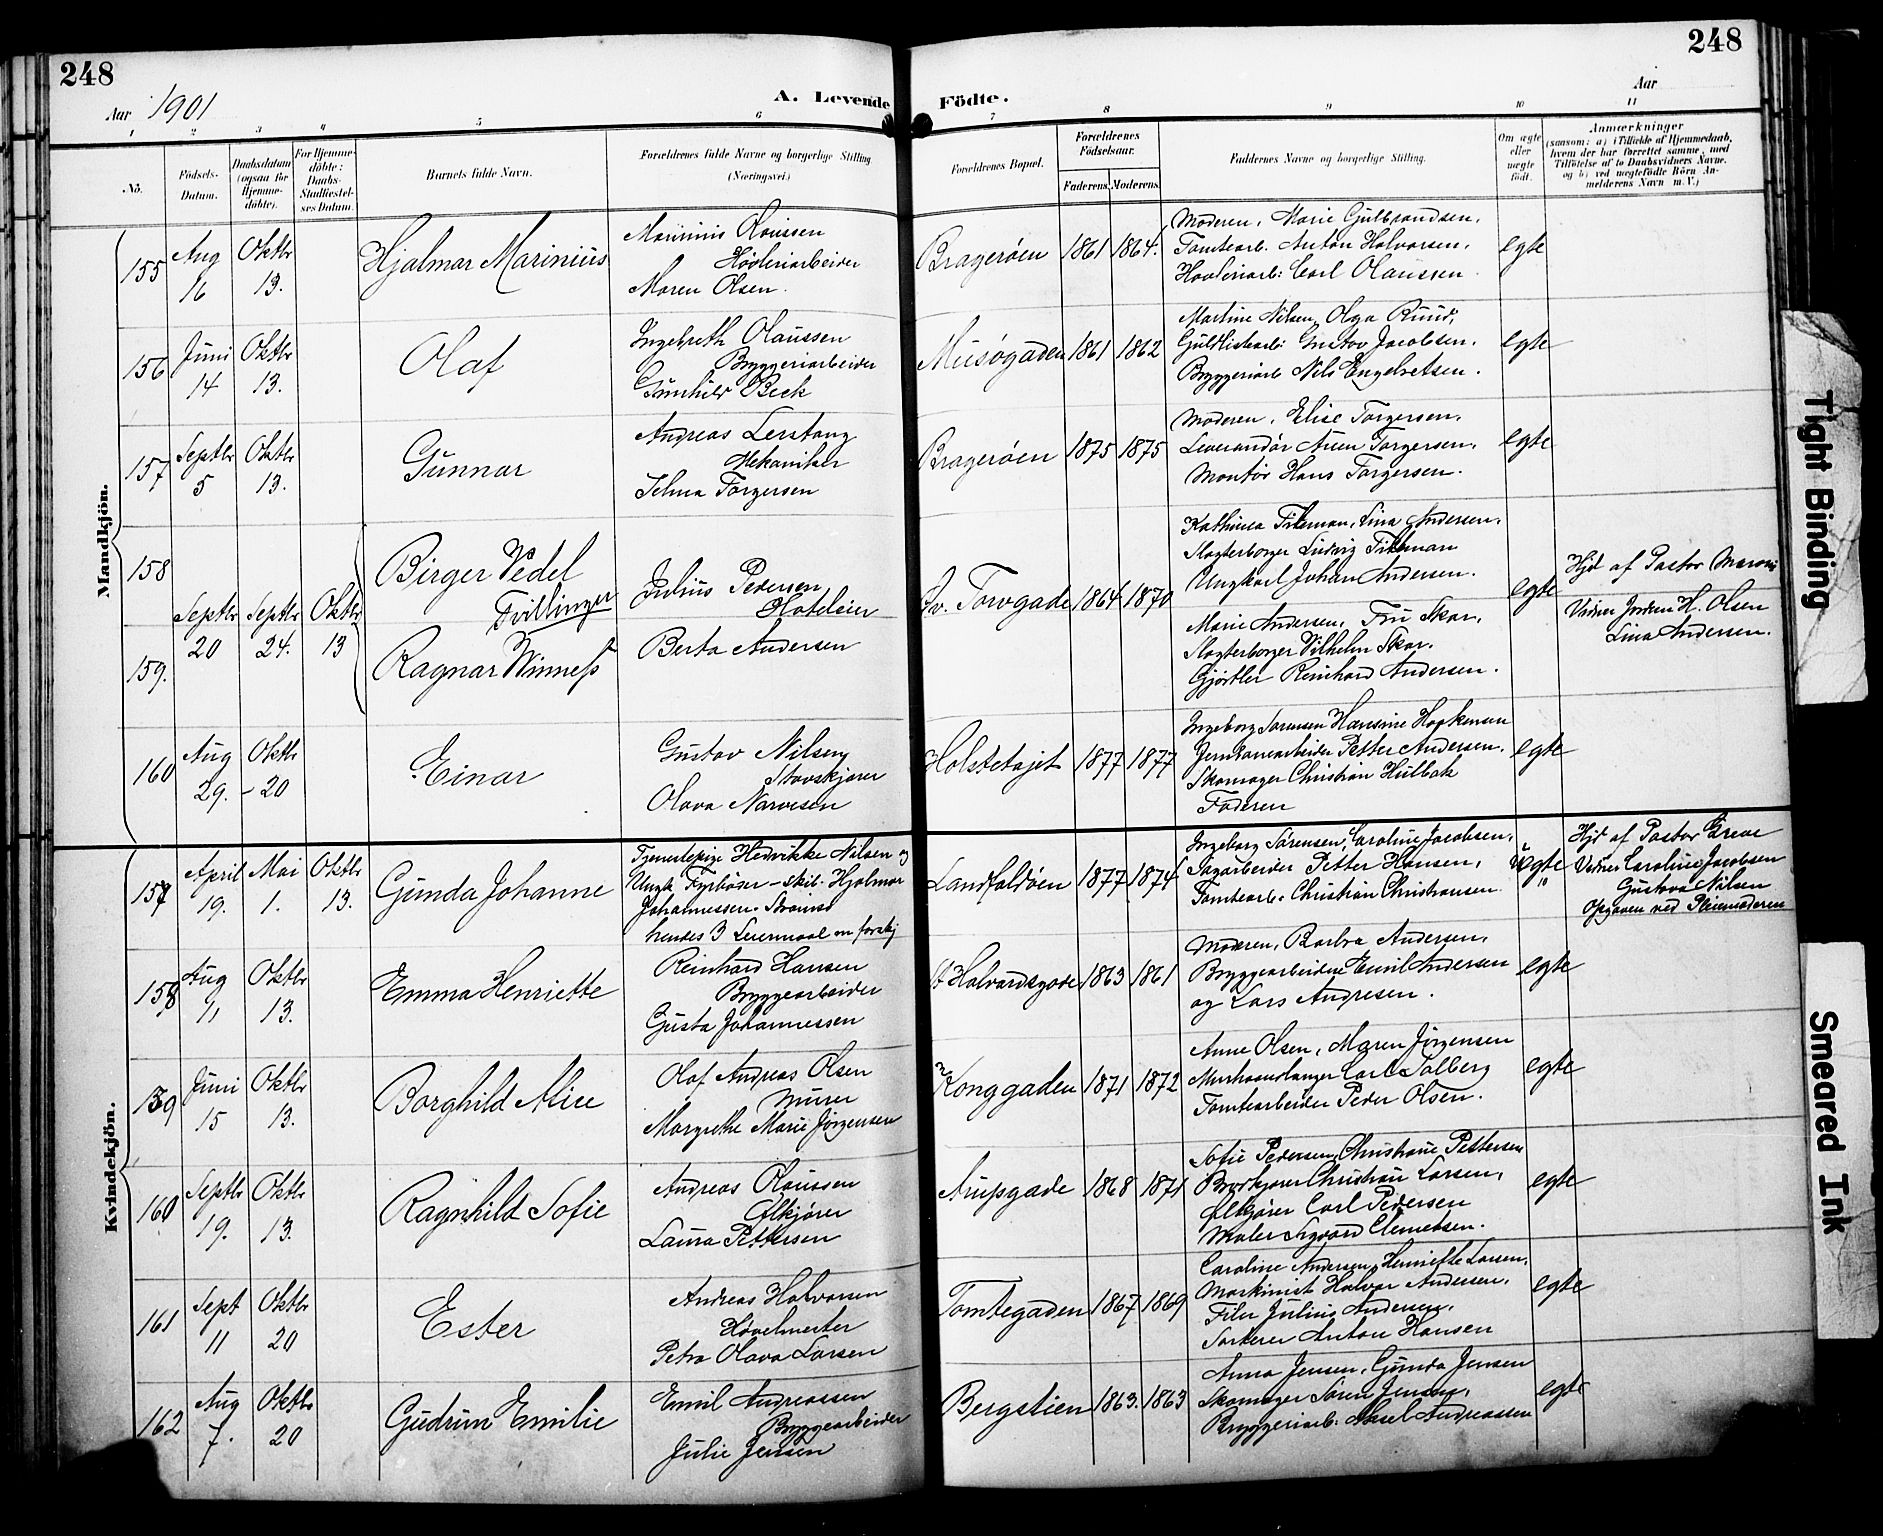 248
248
Aar 1901
A. Levende Födte.
Aar
1 2 3 4 5 6 7 8 9 10 11
No.
Födsels-
Datum.
Daabsdatum
(ogsaa för
Hjemme-
döbte).
For Hjemme-
döbte:
Daabs-
Stadfæstel-
ses Datum.
Barnets fulde Navn.
Forældrenes fulde Navne og borgerlige Stilling
(Næringsvei.)
Forældrenes Bopæl.
Forældrenes
Födselsaar.
Faderens. Moderens.
Faddernes Navne og borgerlige Stilling.
Om ægte
eller
uægte
födt.
Anmærkninger
(saasom: a) i Tilfælde af Hjemmedaab,
hvem der har forrettet samme, med
Tilföielse af to Daabsvidners Navne.
og b) ved uægtefödte Börn An-
melderens Navn m. V.)
Mandkjön.
155
Aug
16
Oktbr
13.
Hjalmar Marinius
Marinius Olaussen
Høvleriarbeider
Maren Olsen.
Bragerøen 1861 1864.
Moderen, Marie Gulbrandsen,
Tomtearb. Anton Halvorsen,
Høvleriarb: Carl Olaussen.
egte
156
Juni
14
Oktbr
13.
Olaf
Ingebreth Olaussen
Bryggeriarbeider
Gunhild Beck
Musøgaden 1861 1862
Martine Nilsen, Olga Ruud,
Guldlistearb: Gustav Jacobsen,
Bryggeriarb Nils Engebretsen.
egte
157
Septbr
5
Oktbr
13.
Gunnar
Andreas Lerstang
Mekaniker
Selma Torgersen
Bragerøen 1875 1875
Moderen, Elise Torgersen,
Leverandør Auen Torgersen,
Montør Hans Torgersen.
egte
158
159.
Septbr
20
Septbr
24.
Oktbr
13
Birger Vedel
Tvillinger
Ragnar Winness
Julius Pedersen
Hoteleier
Berta Andersen
Øv. Torvgade 1864 1870
Kathinca Tileman, Lina Andersen,
Slagterborger Ludvig Tilleman
Ungkarl Johan Andersen.
Marie Andersen, Fru Skar,
Slagterborger Vilhelm Skar.
Gjørtler Reinhard Andersen.
egte
Hjd af Pastor
Vidner Jordm H. Olsen
Lina Andersen.
160
Aug
29.
Oktbr
- 20
Einar
Gustav Nilsen
Stavskjører
Olava Narvesen
Holstetajet 1877 1877
Ingeborg Sørensen Hansine Haakensen
Jernbanearbeider Petter Andersen.
Skomager Christian Hulbak
Faderen
egte
Kvindekjön.
157
April
19.
Mai
1.
Oktbr
13.
Gunda Johanne
Tjenestepige Hedvikke Nilsen og
Ungk Fyrbøder - skib. Hjalmar
Johannessen. Strømsø
hendes 3 Leiermaal m forskj
Landfaldøen 1877 1874
Ingeborg Sørensen, Caroline Jacobsen,
Sagarbeider Petter Hansen,
Tomtearb. Christian Christiansen
uegte
Hjd af Pastor Greve
Vidner Caroline Jacobsen
Gustava Nilsen
Opgaven ved Pleiemoderen
158
Aug
11
Oktbr
13.
Emma Henriette
Reinhard Hansen
Bryggearbeider
Gusta Johannessen
St Halvardsgade 1863 1861
Moderen, Barbra Andersen,
Bryggearbeidere Emil Andersen
og Lars Andresen.
egte
159
Juni
15
Oktbr
13.
Borghild Alice
Olaf Andreas Olsen
Murer
Margrethe Marie Jørgensen
Konggaden 1871 1872
Anne Olsen, Maren Jørgensen
Murhaandlanger Carl Solberg
Tomtearbeider Peder Olsen.
egte
160
Septbr
19.
Oktbr
13.
Ragnhild Sofie
Andreas Olaussen
Ølkjører
Laura Pettersen
Arupsgade 1868 1871
Sofie Pedersen, Christiane Pettersen
Brødkjører Christian Larsen,
Ølkjører Carl Pedersen
Maler Sigvard Clemetsen.
egte
161
Sept
11
Oktbr
20
Ester
Andreas Halvorsen
Høvelmester
Petra Olava Larsen
Tomtegaden 1867 1869
Caroline Andersen, Henriette Larsen,
Maskinist Halvor Andersen,
Filer Julius Andersen,
Sorterer Anton Hansen
egte
162
Aug
7.
Oktbr
20
Gudrun Emilie
Emil Andreassen
Bryggearbeider
Julie Jensen
Bergstien 1863. 1863
Anna Jensen, Gunda Jensen
Skomager Søren Jensen,
Bryggeriarb: Aksel Andreassen
egte
Tight Binding
Smeared Ink